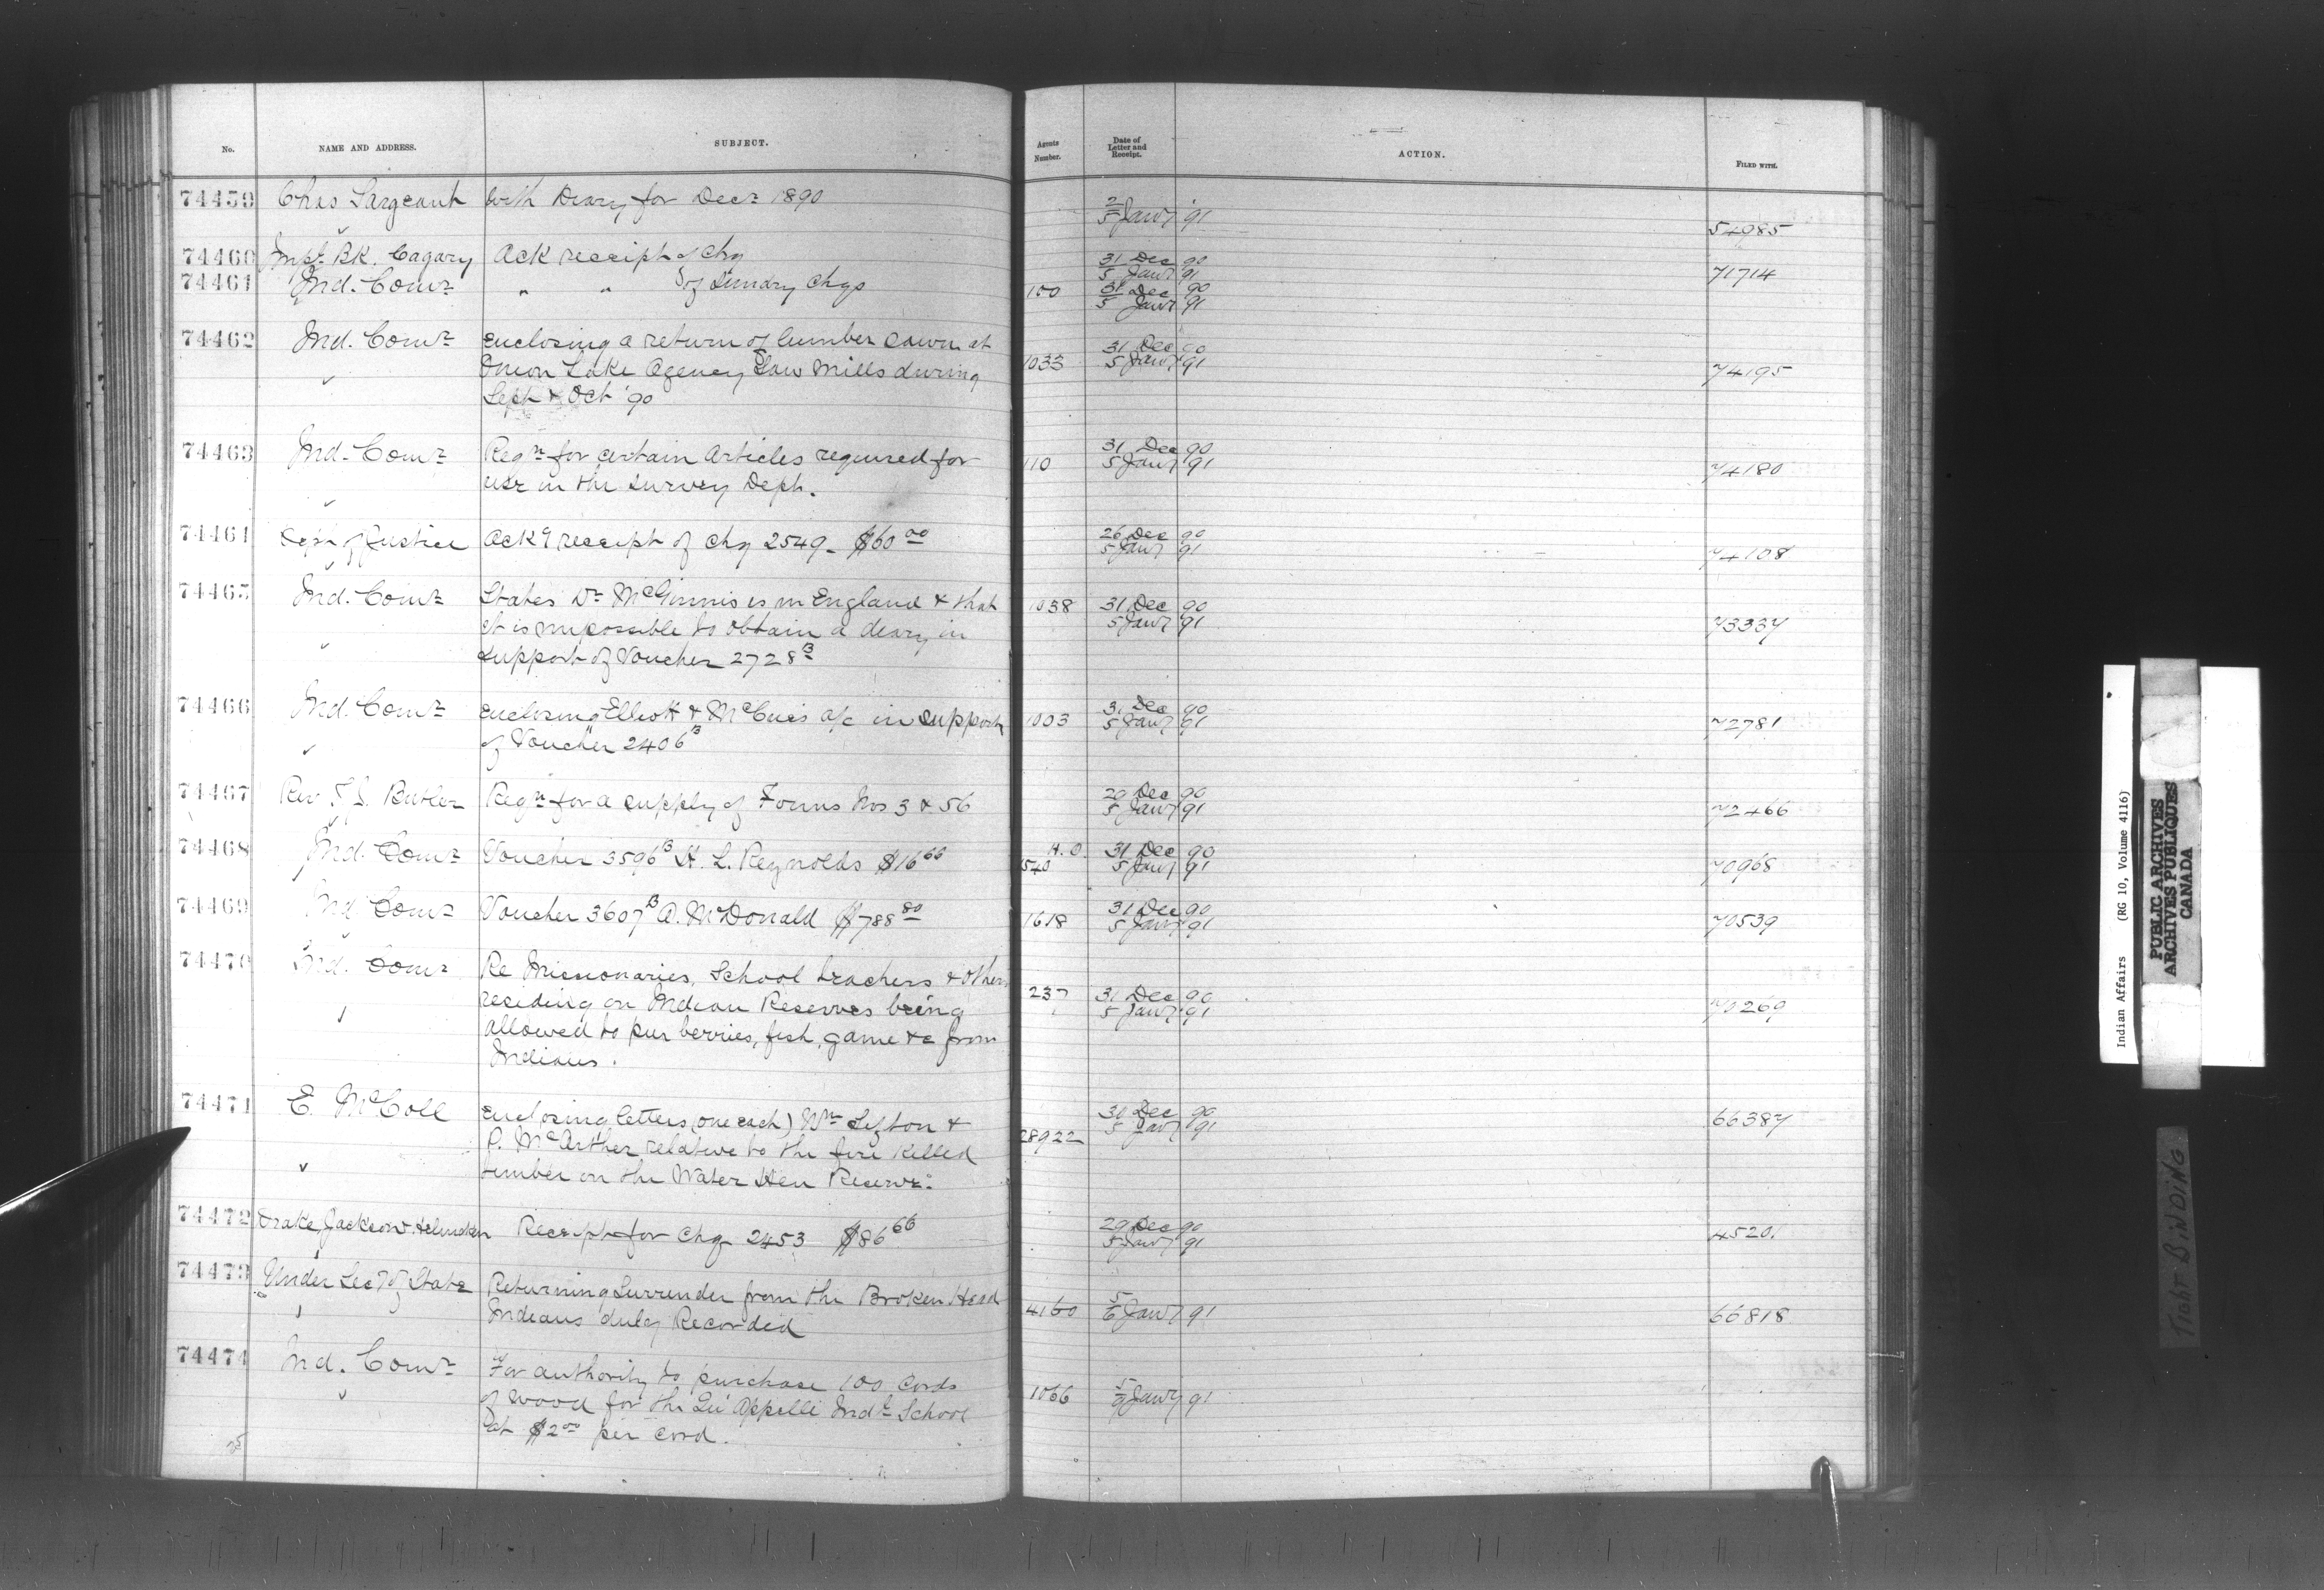 No. NAME AND ADDRESS. SUBJECT. Agents Number. Date of Letter and Receipt. ACTION. FILED WITH.
74459 Chas Sargeant With Diary for Decr 1890 2 5 Jany '91 54985
74460 Impl BK. Cagary Ack receipt of Chq 31 Dec 90 5 Jany 91 71714
74461 Ind. Comr " " of Sundry Chqs 100 31 Dec 90 5 Jany 91
74462 Ind. Comr Enclosing a return of lumber sawn at 1033 31 Dec 90 5 Jany 91 74195
Onion Lake Agency Saw Mills during
Sept & Oct '90
74463 Ind. Comr Reqn for certain Articles required for 110 31 Dec 90 5 Jany 91 74180
use in the Survey Dept.
74464 Dept of Justice Ack'g receipt of Chq 2549 - $60 00 26 Dec 90 5 Jany 91 74108
74465 Ind. Comr States Dr McGinnis is in England & that 1038 31 Dec 90 5 Jany 91 73337
it is impossible to obtain a diary in
support of Voucher 2728 B
74466 Ind. Comr Enclosing Elliott & McCue's a/c in support 1003 31 Dec 90 5 Jany 91 72781
of Voucher 2406 B
74467 Rev Butler Reqn for a supply of Forms Nos 3 & 56 29 Dec 90 5 Jany 91 72466
74468 Ind. Comr Voucher 3596 B H. L. Reynolds $16 66 H.O. 1540 31 Dec 90 5 Jany 91 70968
74469 Ind Comr Voucher 3607 B A. McDonald $788 80 1618 31 Dec 90 5 Jany 91 70539
74470 Ind. Comr Re Missionaries, School teachers & others 237 31 Dec 90 5 Jany 91 70269
residing on Indian Reserves being
allowed to pur berries, fish, game &c from
Indians.
74471 E. McColl Enclosing letters (one each) Wm Sifton & 28922 30 Dec 90 5 Jany 91 66387
P. McArther relative to the fire killed
timber on the Water Hen Reserve.
74472 Drake, Jackson & Helmcken Receipt for Chq 2453 $86 66 29 Dec 90 5 Jany 91 4520
74473 Under Secy of State Returning Surrender from the Broken Head 4160 5 6 Jany 91 66818
Indians duly Recorded
74474 Ind. Comr For authority to purchase 100 Cords 1066 5 Jany 91
of wood for the Qu'Appelle Indl School
at $2 00 per cord.
25
Indian Affairs (RG 10, Volume 4116)
PUBLIC ARCHIVES
ARCHIVES PUBLIQUES
CANADA
Tight BiNDiNG